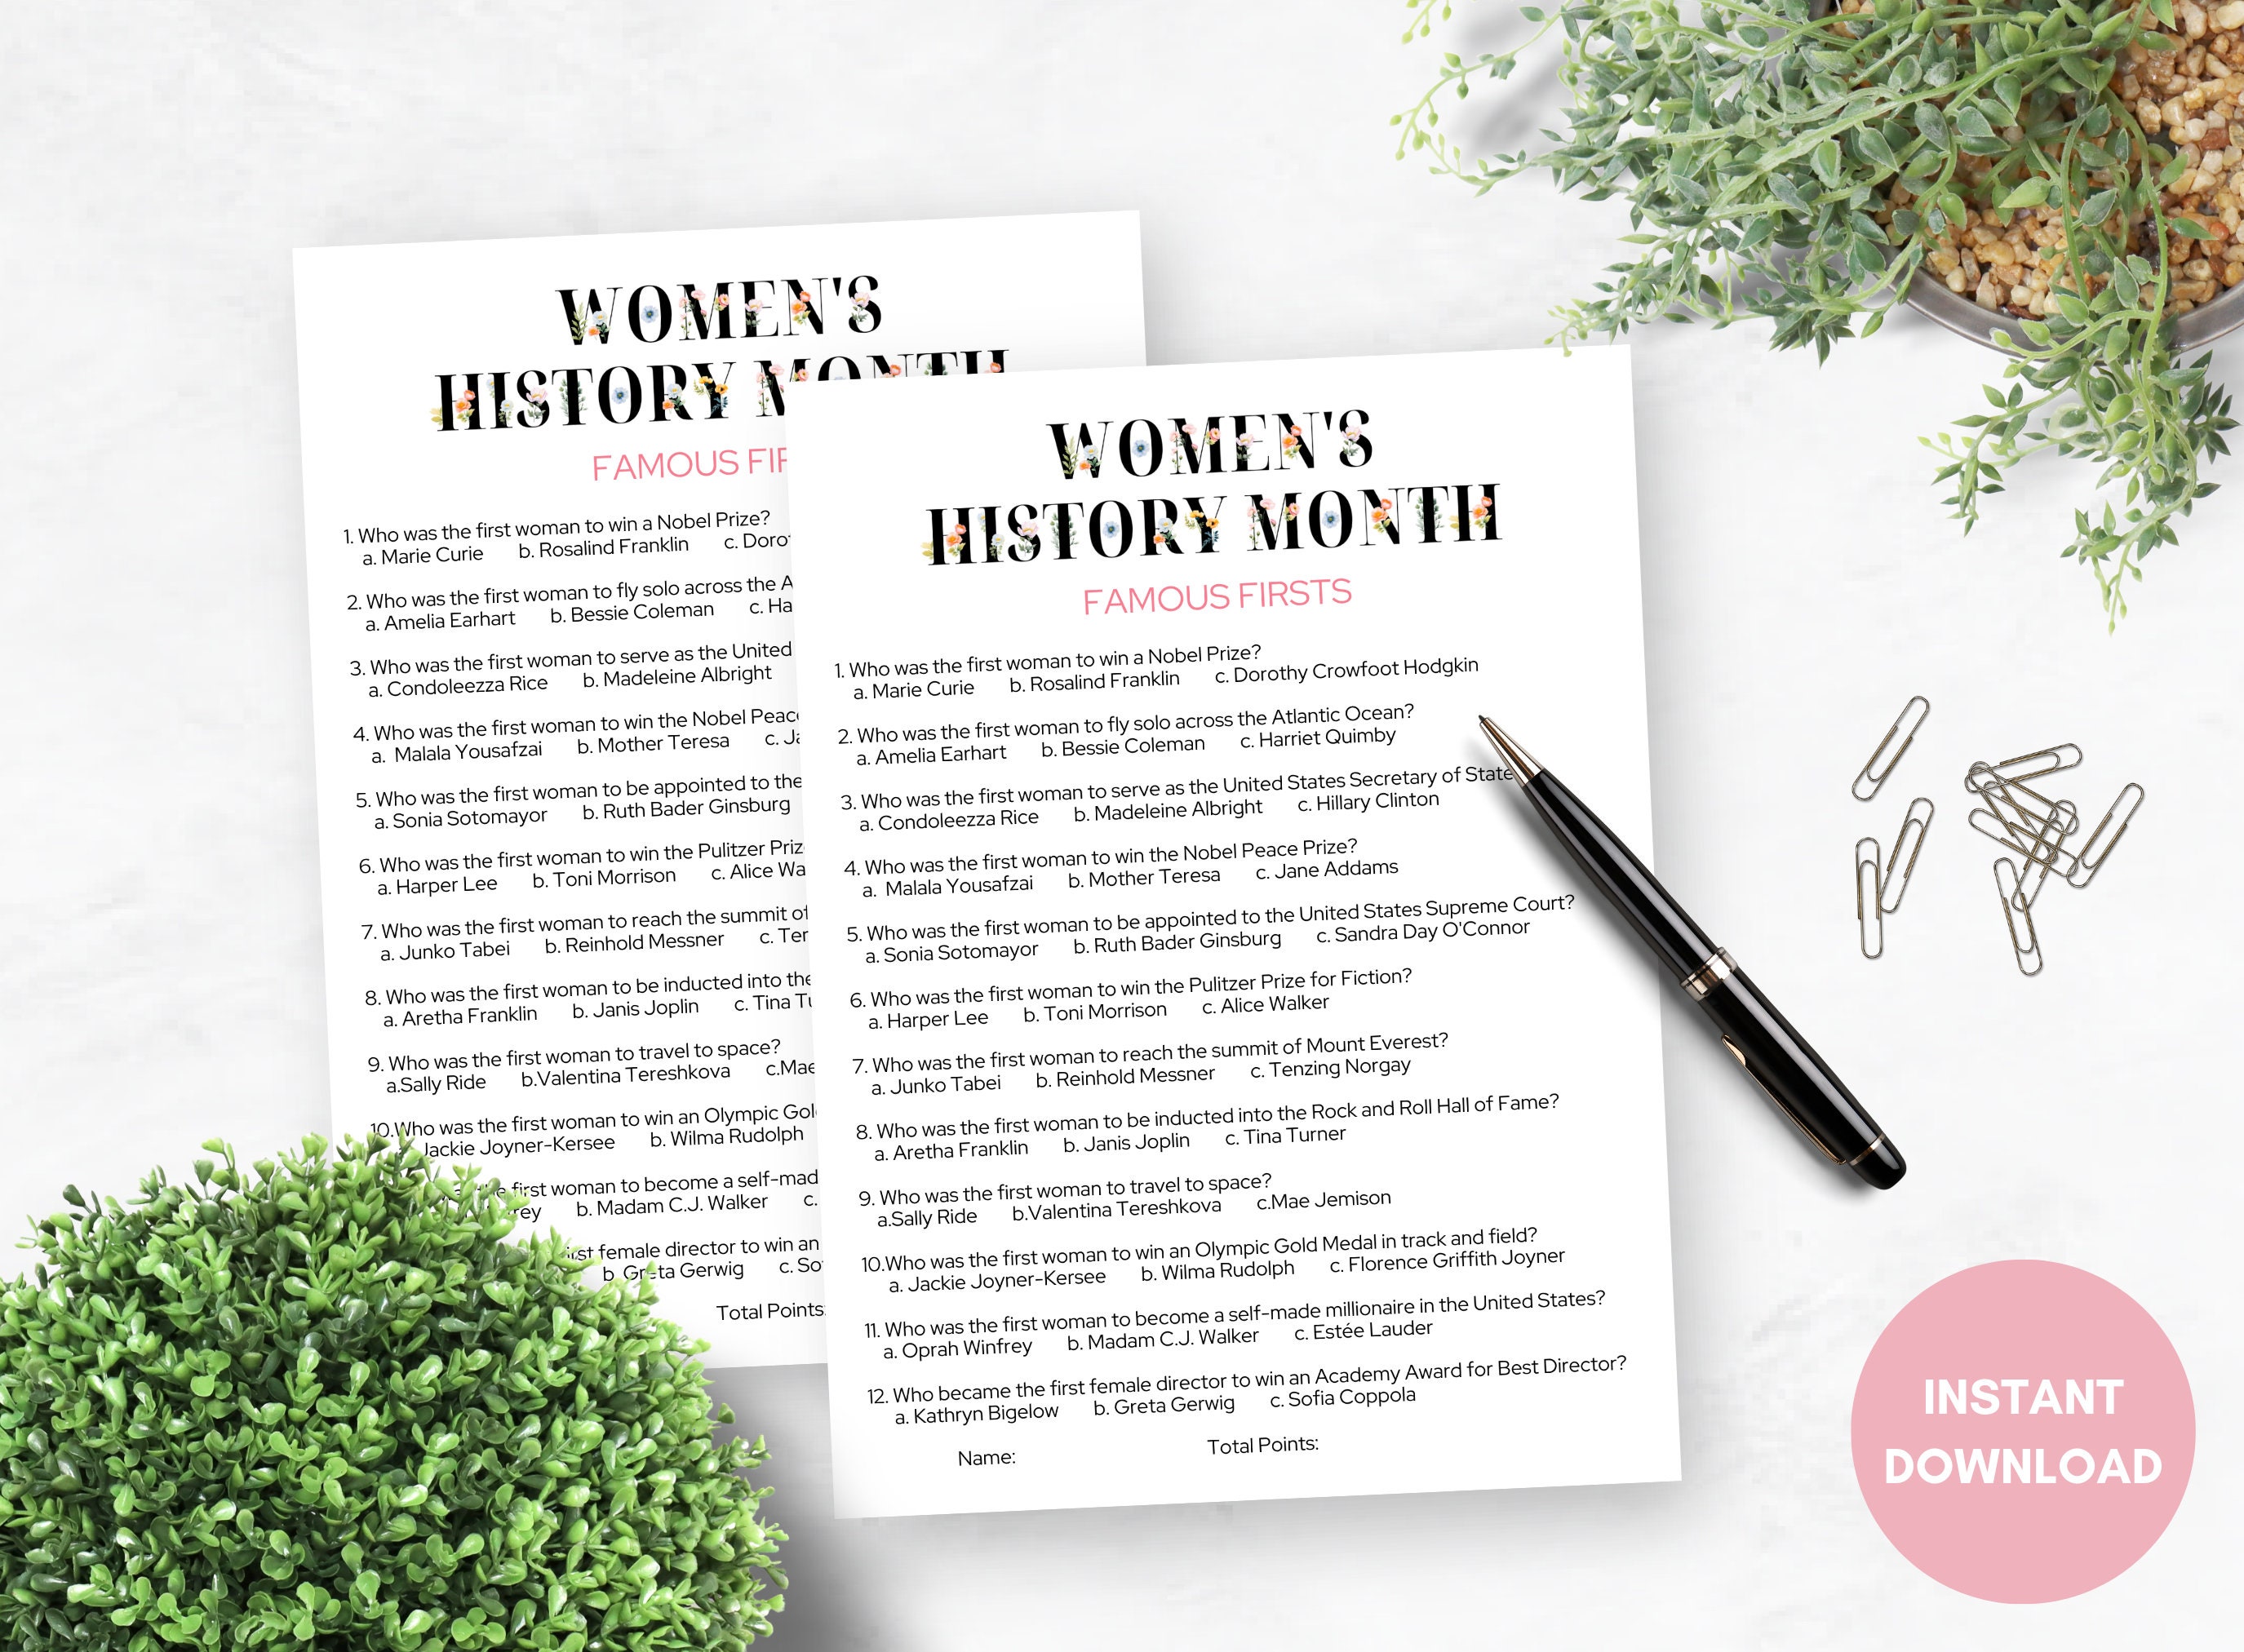 WOMEN'S
HISTORY MONTH
FAMOUS FIR
1. Who was the first woman to win a Nobel Prize?
a. Marie Curie b. Rosalind Franklin c. Doro
2. Who was the first woman to fly solo across the A
a. Amelia Earhart b. Bessie Coleman c. Ha
3. Who was the first woman to serve as the United
a. Condoleezza Rice b. Madeleine Albright
4. Who was the first woman to win the Nobel Peac
a. Malala Yousafzai b. Mother Teresa c. Ja
5. Who was the first woman to be appointed to the
a. Sonia Sotomayor b. Ruth Bader Ginsburg
6. Who was the first woman to win the Pulitzer Priz
a. Harper Lee b. Toni Morrison c. Alice Wa
7. Who was the first woman to reach the summit of
a. Junko Tabei b. Reinhold Messner c. Ten
8. Who was the first woman to be inducted into the
a. Aretha Franklin b. Janis Joplin c. Tina Tu
9. Who was the first woman to travel to space?
a.Sally Ride b.Valentina Tereshkova c.Mae
10.Who was the first woman to win an Olympic Gol
Jackie Joyner-Kersee b. Wilma Rudolph
first woman to become a self-mad
rey b. Madam C.J. Walker c.
irst female director to win an
b. Greta Gerwig c. So
Total Points:
WOMEN'S
HISTORY MONTH
FAMOUS FIRSTS
1. Who was the first woman to win a Nobel Prize?
a. Marie Curie b. Rosalind Franklin c. Dorothy Crowfoot Hodgkin
2. Who was the first woman to fly solo across the Atlantic Ocean?
a. Amelia Earhart b. Bessie Coleman c. Harriet Quimby
3. Who was the first woman to serve as the United States Secretary of State
a. Condoleezza Rice b. Madeleine Albright c. Hillary Clinton
4. Who was the first woman to win the Nobel Peace Prize?
a. Malala Yousafzai b. Mother Teresa c. Jane Addams
5. Who was the first woman to be appointed to the United States Supreme Court?
a. Sonia Sotomayor b. Ruth Bader Ginsburg c. Sandra Day O'Connor
6. Who was the first woman to win the Pulitzer Prize for Fiction?
a. Harper Lee b. Toni Morrison c. Alice Walker
7. Who was the first woman to reach the summit of Mount Everest?
a. Junko Tabei b. Reinhold Messner c. Tenzing Norgay
8. Who was the first woman to be inducted into the Rock and Roll Hall of Fame?
a. Aretha Franklin b. Janis Joplin c. Tina Turner
9. Who was the first woman to travel to space?
a.Sally Ride b.Valentina Tereshkova c.Mae Jemison
10.Who was the first woman to win an Olympic Gold Medal in track and field?
a. Jackie Joyner-Kersee b. Wilma Rudolph c. Florence Griffith Joyner
11. Who was the first woman to become a self-made millionaire in the United States?
a. Oprah Winfrey b. Madam C.J. Walker c. Estée Lauder
12. Who became the first female director to win an Academy Award for Best Director?
a. Kathryn Bigelow b. Greta Gerwig c. Sofia Coppola
Name: Total Points:
INSTANT
DOWNLOAD